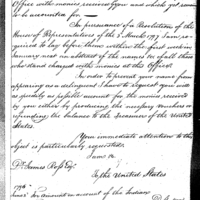 Office with monies received by you and which yet remain
to be accounted for.
In pursuance of a Resolution of the
House of Representatives of the 3 March 1797 I am re-
quired to lay before them within the first week in
January next an abstract of the names &c of all those
who stand charged with monies at this Office.
In order to prevent your name from
appearing as a delinquent I have to request you will
as quickly as possible account for the monies received
by you either by producing the necessary vouchers or
refunding the balance to the Treasurer of the United
States.
Your immediate attention to this
object is particularly requested.
I am &c
Dr James Ross Esqr
To the United States
account on account of the Indian